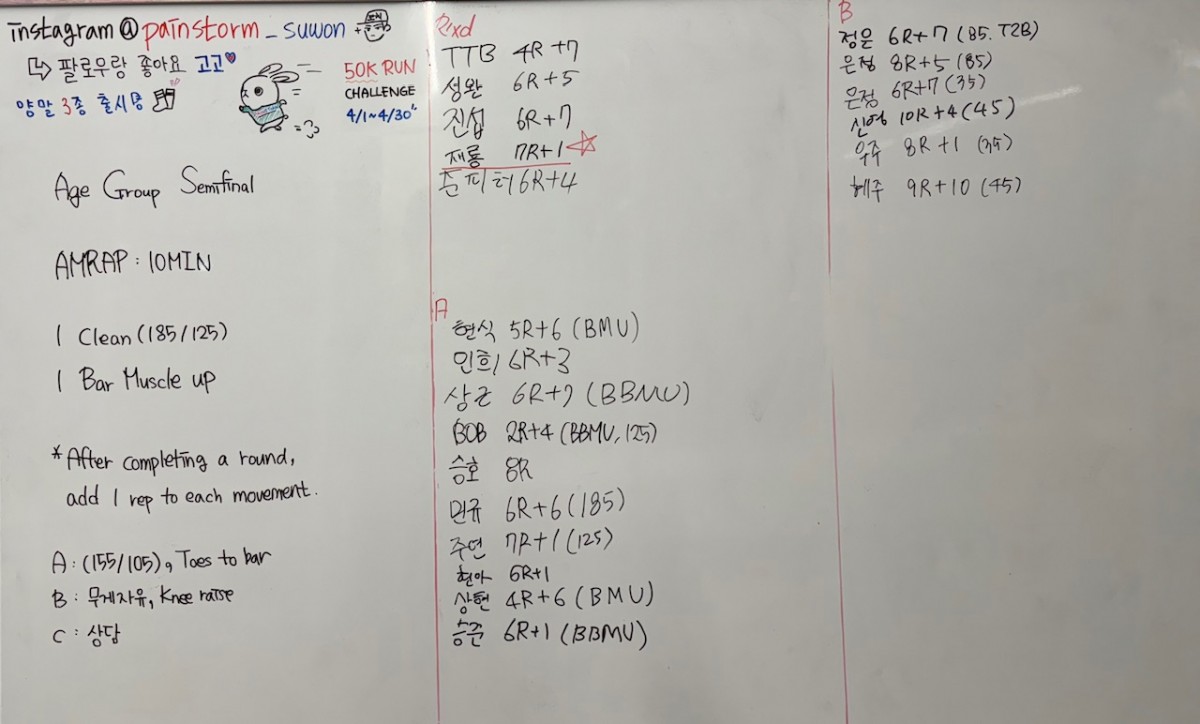 instagram@painstorm_suwon
팔로우랑 좋아요 고고
양말 3종 출시중
50K RUN
CHALLENGE
4/1~4/30
Age Group Semifinal
AMRAP : 10MIN
1 Clean (185/125)
1 Bar Muscle up
*After completing a round,
add 1 rep to each movement.
A : (155/105), Toes to bar
B : 무게자유, Knee raise
C : 상담
Rxd
TTB 4R+7
성완 6R+5
진섭 6R+7
재룡 7R+1
준피터 6R+4
A
현식 5R+6 (BMU)
민희 6R+3
상근 6R+7 (BBMU)
BOB 2R+4 (BBMU, 125)
승호 8R
민규 6R+6 (185)
주연 7R+1 (125)
현아 6R+1
상현 4R+6 (BMU)
승준 6R+1 (BBMU)
B
정은 6R+7 (85. T2B)
은정 8R+5 (85)
은정 6R+7 (35)
신영 10R+4 (45)
우주 8R+1 (35)
혜주 9R+10 (45)